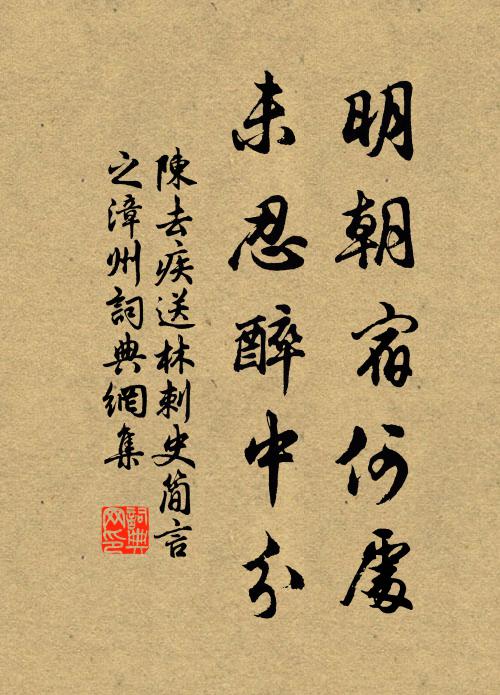 明朝宿何處
未忍醉中分
陳去疾送林刺史簡言
之漳州詞典網集
詞典網印